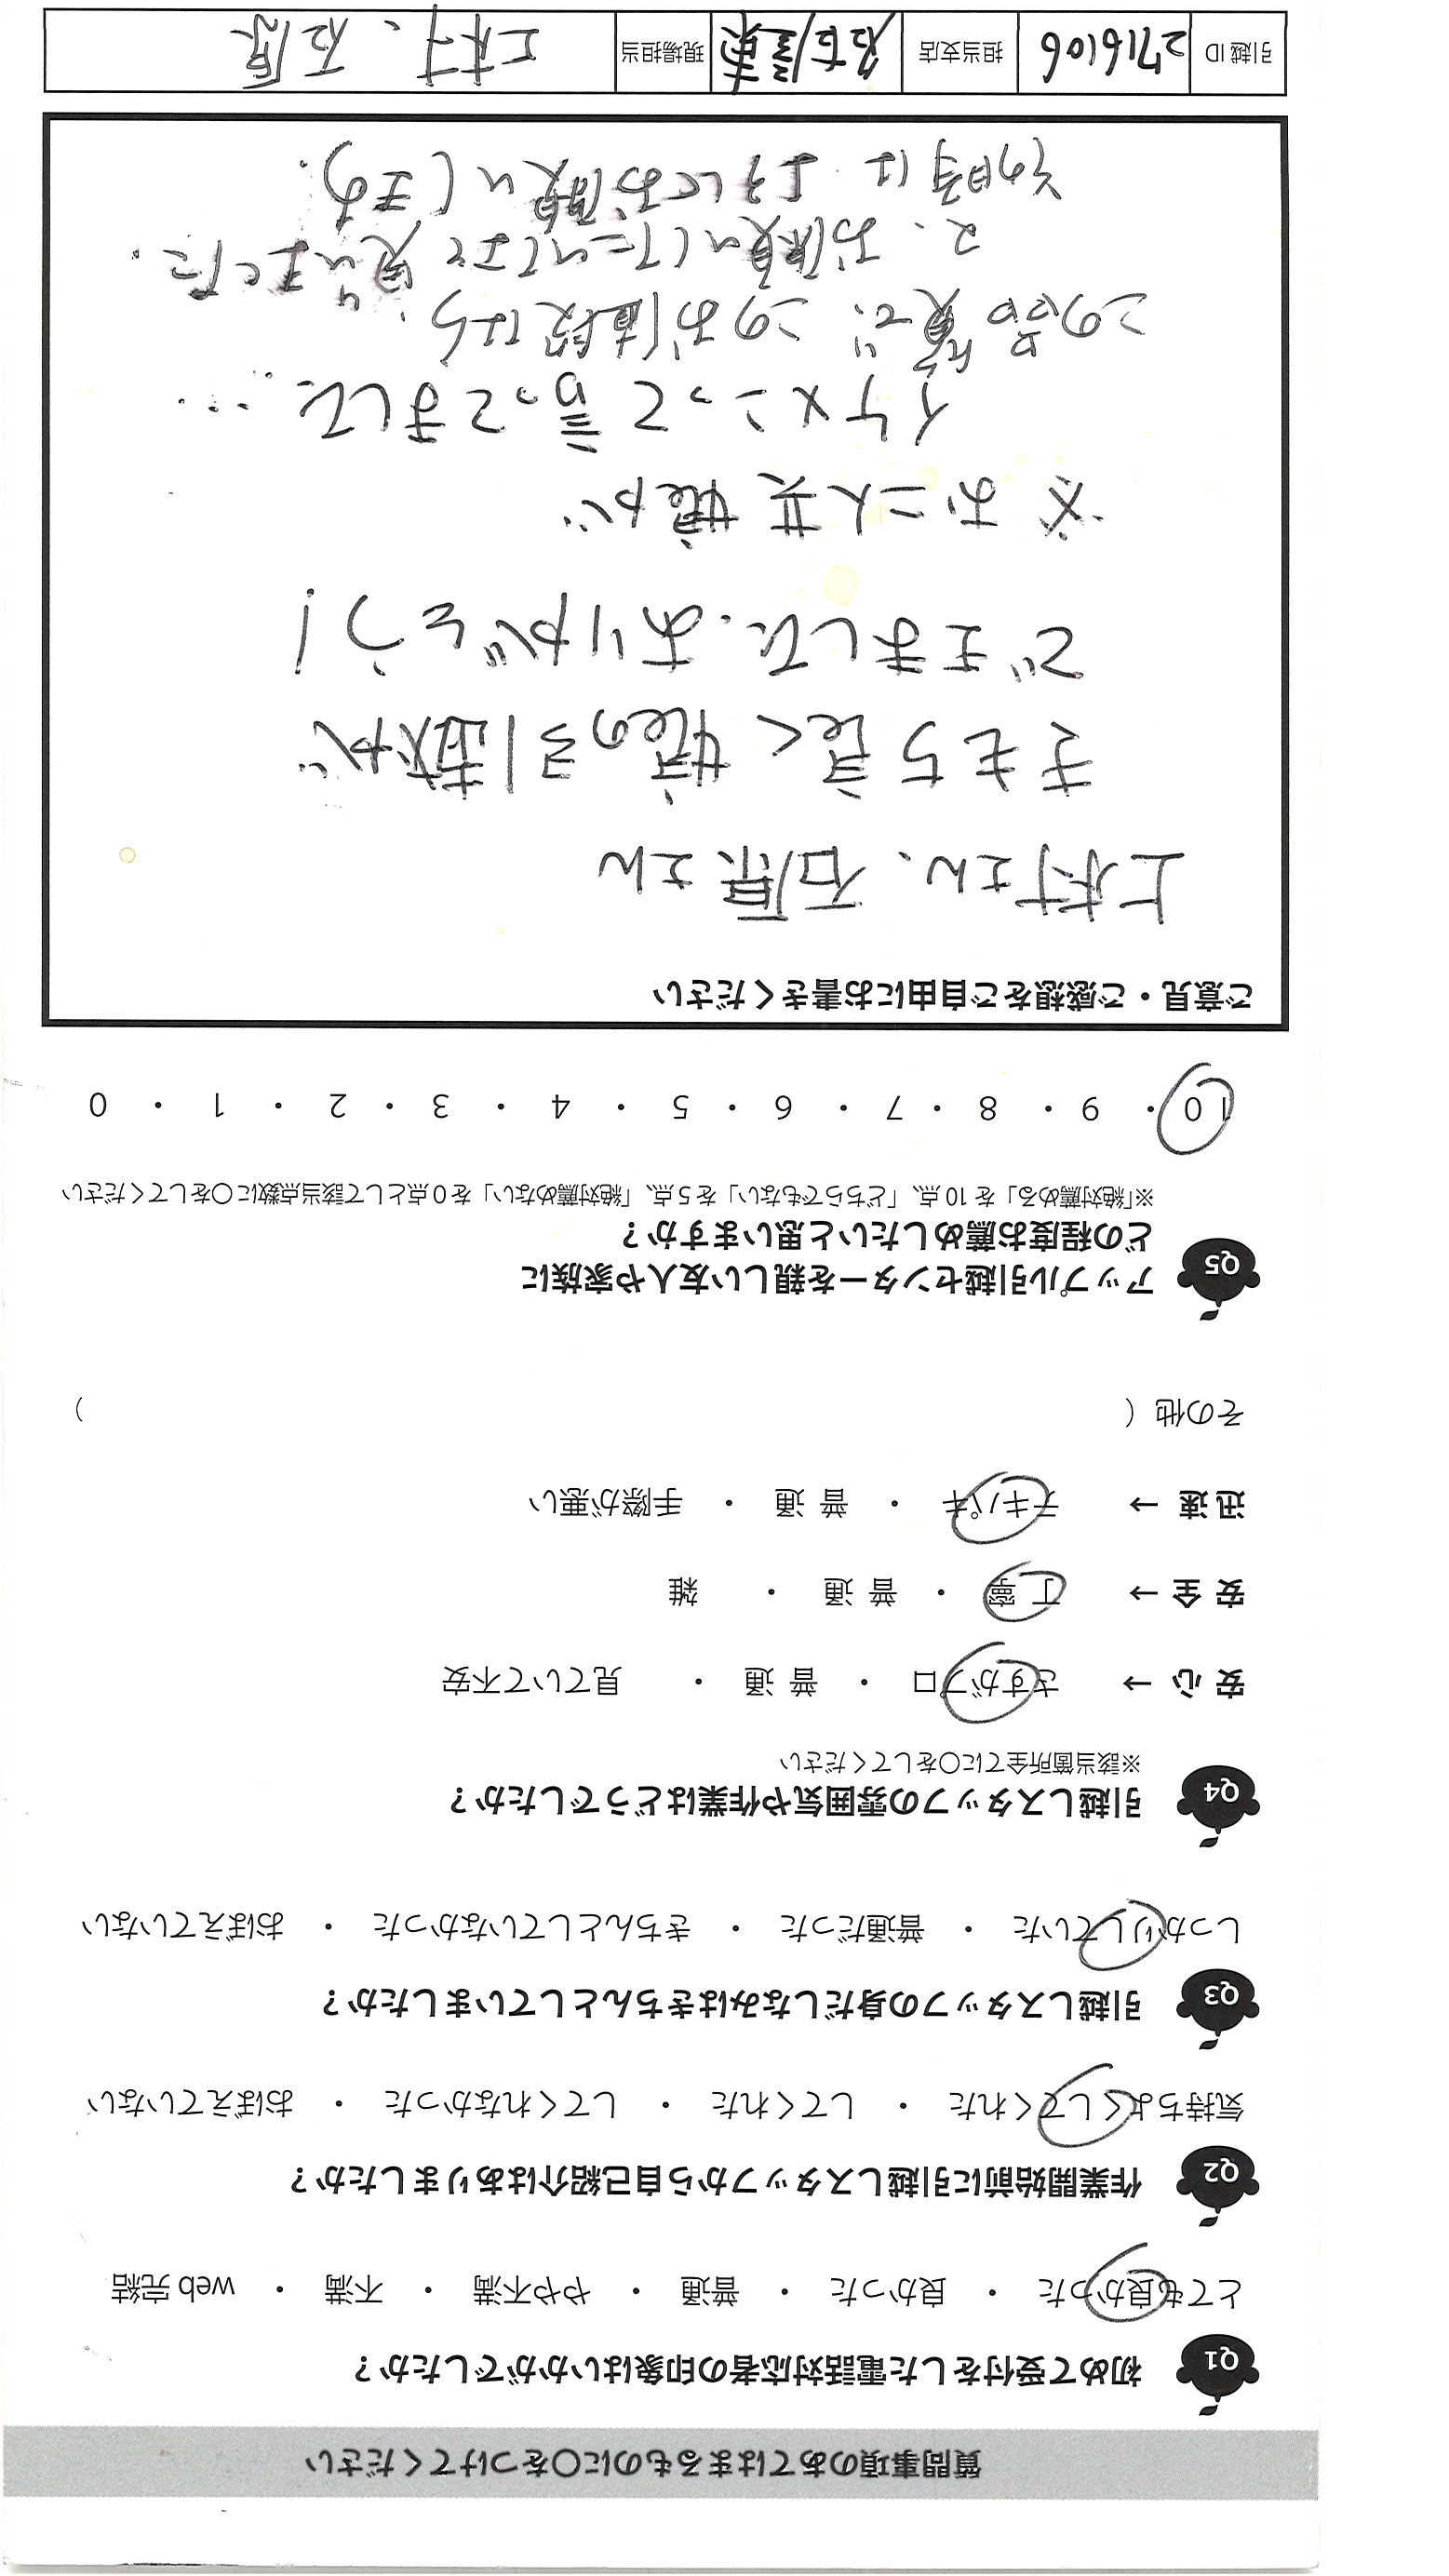 質問事項のあてはまるものに○をつけてください
Q1 初めて受付をした電話対応者の印象はいかがでしたか？
とても良かった ・ 良かった ・ 普通 ・ やや不満 ・ 不満 ・ web 完結
Q2 作業開始前に引越しスタッフから自己紹介はありましたか？
気持ちよくしてくれた ・ してくれた ・ してくれなかった ・ おぼえていない
Q3 引越しスタッフの身だしなみはきちんとしていましたか？
しっかりしていた ・ 普通だった ・ きちんとしていなかった ・ おぼえていない
Q4 引越しスタッフの雰囲気や作業はどうでしたか？
※該当箇所全てに○をしてください
安心→ さすがプロ ・ 普通 ・ 見ていて不安
安全→ 丁寧 ・ 普通 ・ 雑
迅速→ テキパキ ・ 普通 ・ 手際が悪い
その他（ ）
Q5 アップル引越センターを親しい友人や家族に
どの程度お薦めしたいと思いますか？
※「絶対薦める」を 10 点、「どちらでもない」を 5 点、「絶対薦めない」を 0 点として該当点数に○をしてください
10 ・ 9 ・ 8 ・ 7 ・ 6 ・ 5 ・ 4 ・ 3 ・ 2 ・ 1 ・ 0
ご意見・ご感想をご自由にお書きください
上村さん、石原さん
きもち良く娘の引越が
できました。ありがとう！
※ お二人共 娘が
イケメンって言ってました…
この品質で、このお値段なら
又、お願いしたいなと思いました.
その時は よろしくお願いします.
引越 ID 2716106 担当支店 名古屋東 現場担当 上村、石原